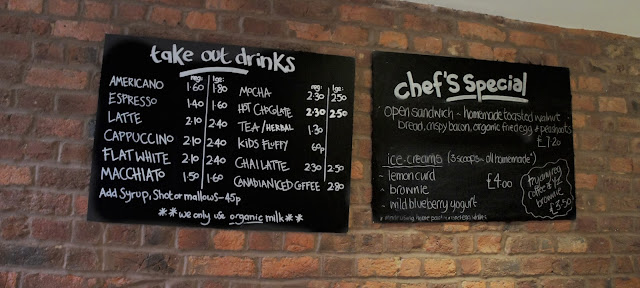 take out drinks
reg: lge:
AMERICANO 1·60 1·80
ESPRESSO 1·40 1·60
LATTE 2·10 2·40
CAPPUCCINO 2·10 2·40
FLAT WHITE 2·10 2·40
MACCHIATO 1·50 1·60
reg: lge:
MOCHA 2·30 2·50
HOT CHOCOLATE 2·30 2·50
TEA/HERBAL 1·30
KIDS FLUFFY 60p
CHAI LATTE 2·30 2·50
CANADIAN ICED COFFEE 2·80
Add Syrup, Shot or mallows - 45p
**we only use organic milk**
chef's special
open sandwich ~ homemade toasted walnut
bread, crispy bacon, organic fried egg & peashoots
£7·20
ice-creams (3 scoops ~ all homemade*)
- lemon curd
- brownie
- mild blueberry yogurt
£4·00
try any reg
coffee & 1/2
brownie
£3·50